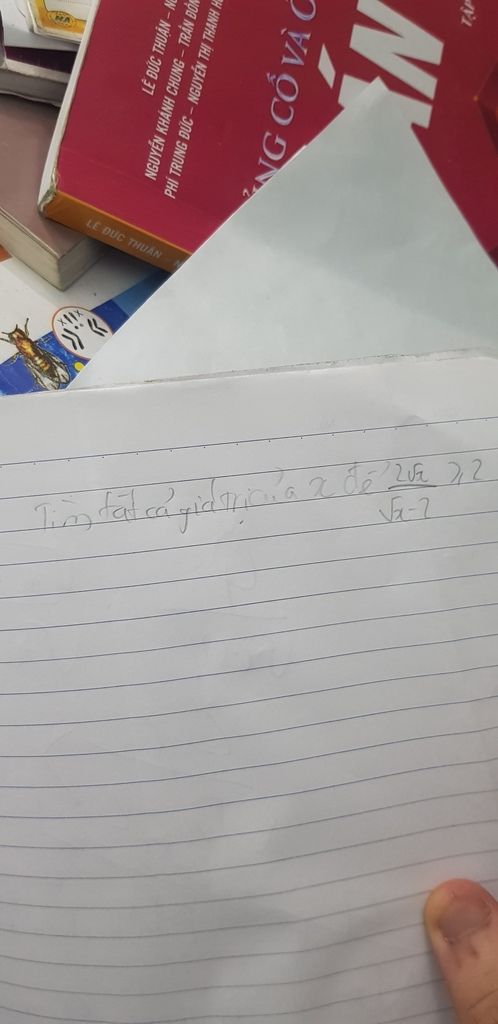 LÊ ĐỨC THUẬN –
NGUYỄN KHÁNH CHUNG – TRẦN
PHÍ TRUNG ĐỨC – NGUYỄN THỊ THANH
CỐ VÀ
TẬP
LÊ ĐỨC THUẬN –
Tìm tất cả giá trị của x để 2√x / √x-2 ≥ 2